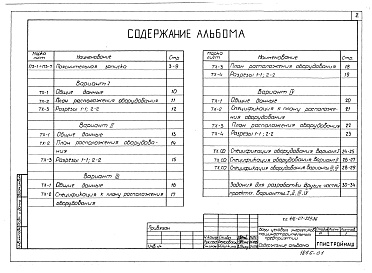 2
СОДЕРЖАНИЕ АЛЬБОМА
Марка листа
Наименование
Стр.
ПЗ-1÷ПЗ-7 Пояснительная записка 3-9
Вариант I
ТХ-1 Общие данные 10
ТХ-2 План расположения оборудования 11
ТХ-3 Разрезы 1-1; 2-2 12
Вариант II
ТХ-1 Общие данные 13
ТХ-2 План расположения оборудова-
ния 14
ТХ-3 Разрезы 1-1; 2-2 15
Вариант III
ТХ-1 Общие данные 16
ТХ-2 Спецификация к плану расположения 17
Марка листа
Наименование
Стр.
ТХ-3 План расположения оборудования 18
ТХ-4 Разрезы 1-1; 2-2 19
Вариант IV
ТХ-1 Общие данные 20
ТХ-2 Спецификация к плану расположе-
ния оборудования 21
ТХ-3 План расположения оборудования 22
ТХ-4 Разрезы 1-1; 2-2 23
ТХ.СО Спецификация оборудования Вариант I
ТХ.СО Спецификация оборудования Вариант II
ТХ.СО Спецификация оборудования Варианты III, IV
Задания для разработки других частей 30-34
проекта. Варианты I, II, III, IV
Привязан
Инв. №
Содержание альбома
ГПИСТРОЙМАШ